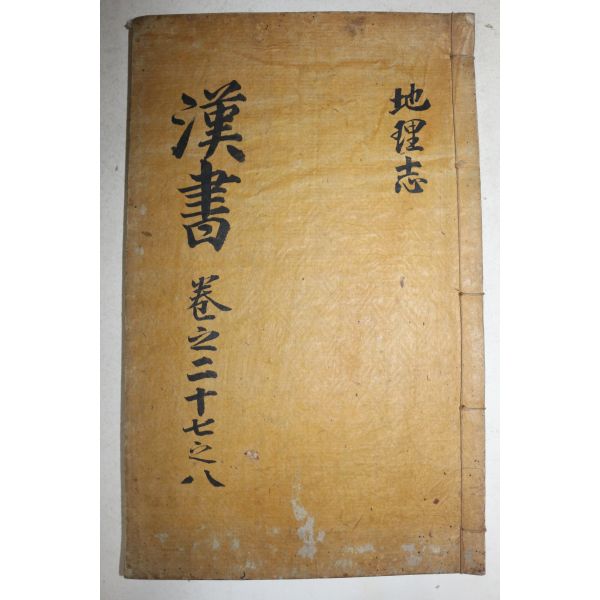 地理志
漢書 卷之二十七之八